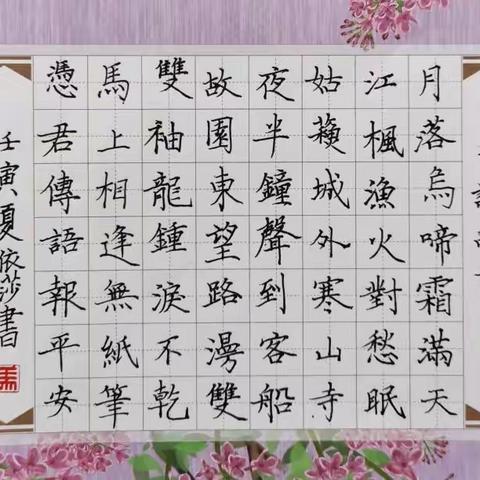 月落烏啼霜滿天
江楓漁火對愁眠
姑蘓城外寒山寺
夜半鐘聲到客船
故園東望路漫雙
雙袖龍鍾淚不乾
馬上相逢無紙筆
憑君傳語報平安
壬寅夏依莎書